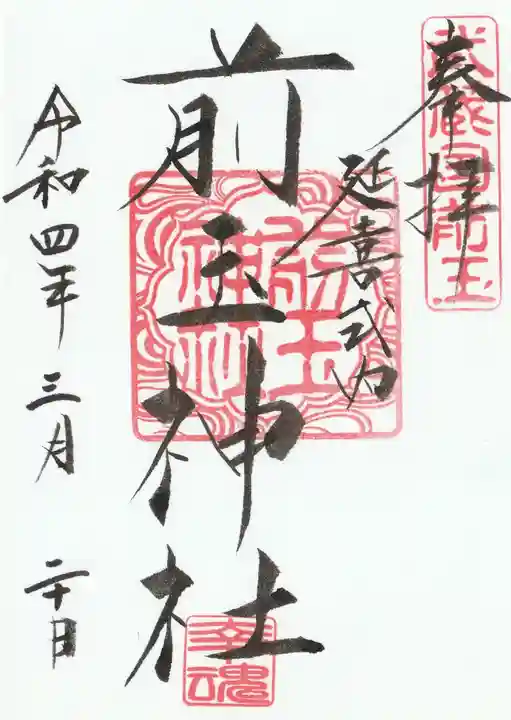 奉拝
武蔵国前玉
延喜式内
前玉神社
前玉神社
幸魂
令和四年三月二十日